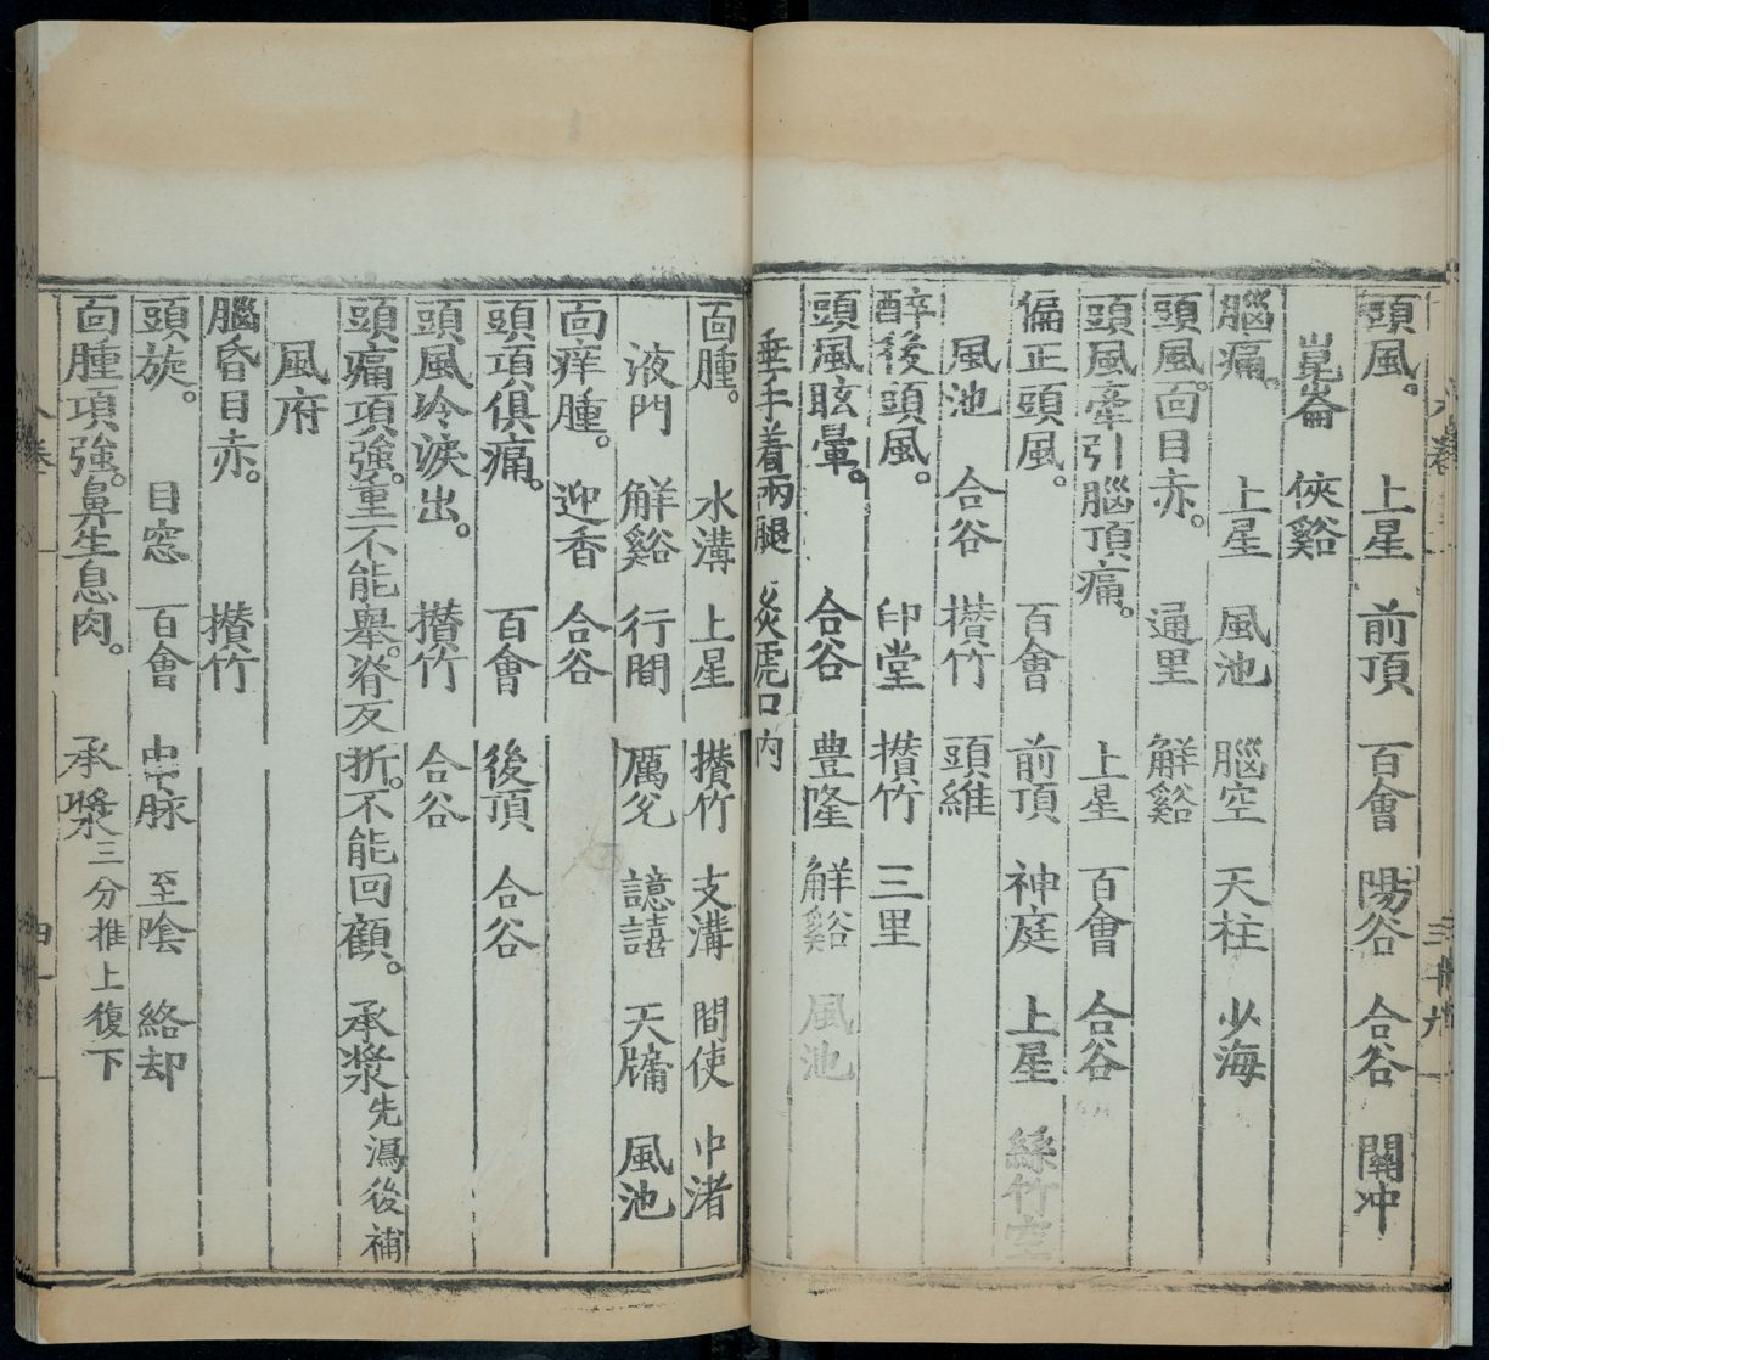 頭風。 上星 前頂 百會 陽谷 合谷 關冲
崑崙 俠谿
腦痛。 上星 風池 腦空 天柱 少海
頭風。面目赤。 通里 解谿
頭風牽引腦頂痛。 上星 百會 合谷
偏正頭風。 百會 前頂 神庭 上星 絲竹空
風池 合谷 攢竹 頭維
醉後頭風。 印堂 攢竹 三里
頭風眩暈。 合谷 豊隆 解谿 風池
垂手着兩腿 灸虎口內
面腫。 水溝 上星 攢竹 支溝 間使 中渚
液門 解谿 行間 厲兌 譩譆 天牖 風池
面痒腫。 迎香 合谷
頭項俱痛。 百會 後頂 合谷
頭風冷淚出。 攢竹 合谷
頭痛項強。重不能舉。脊反折。不能回顧。 承漿先瀉後補
風府
腦昏目赤。 攢竹
頭旋。 目窓 百會 申脉 至陰 絡却
面腫項強。鼻生息肉。 承漿三分推上復下